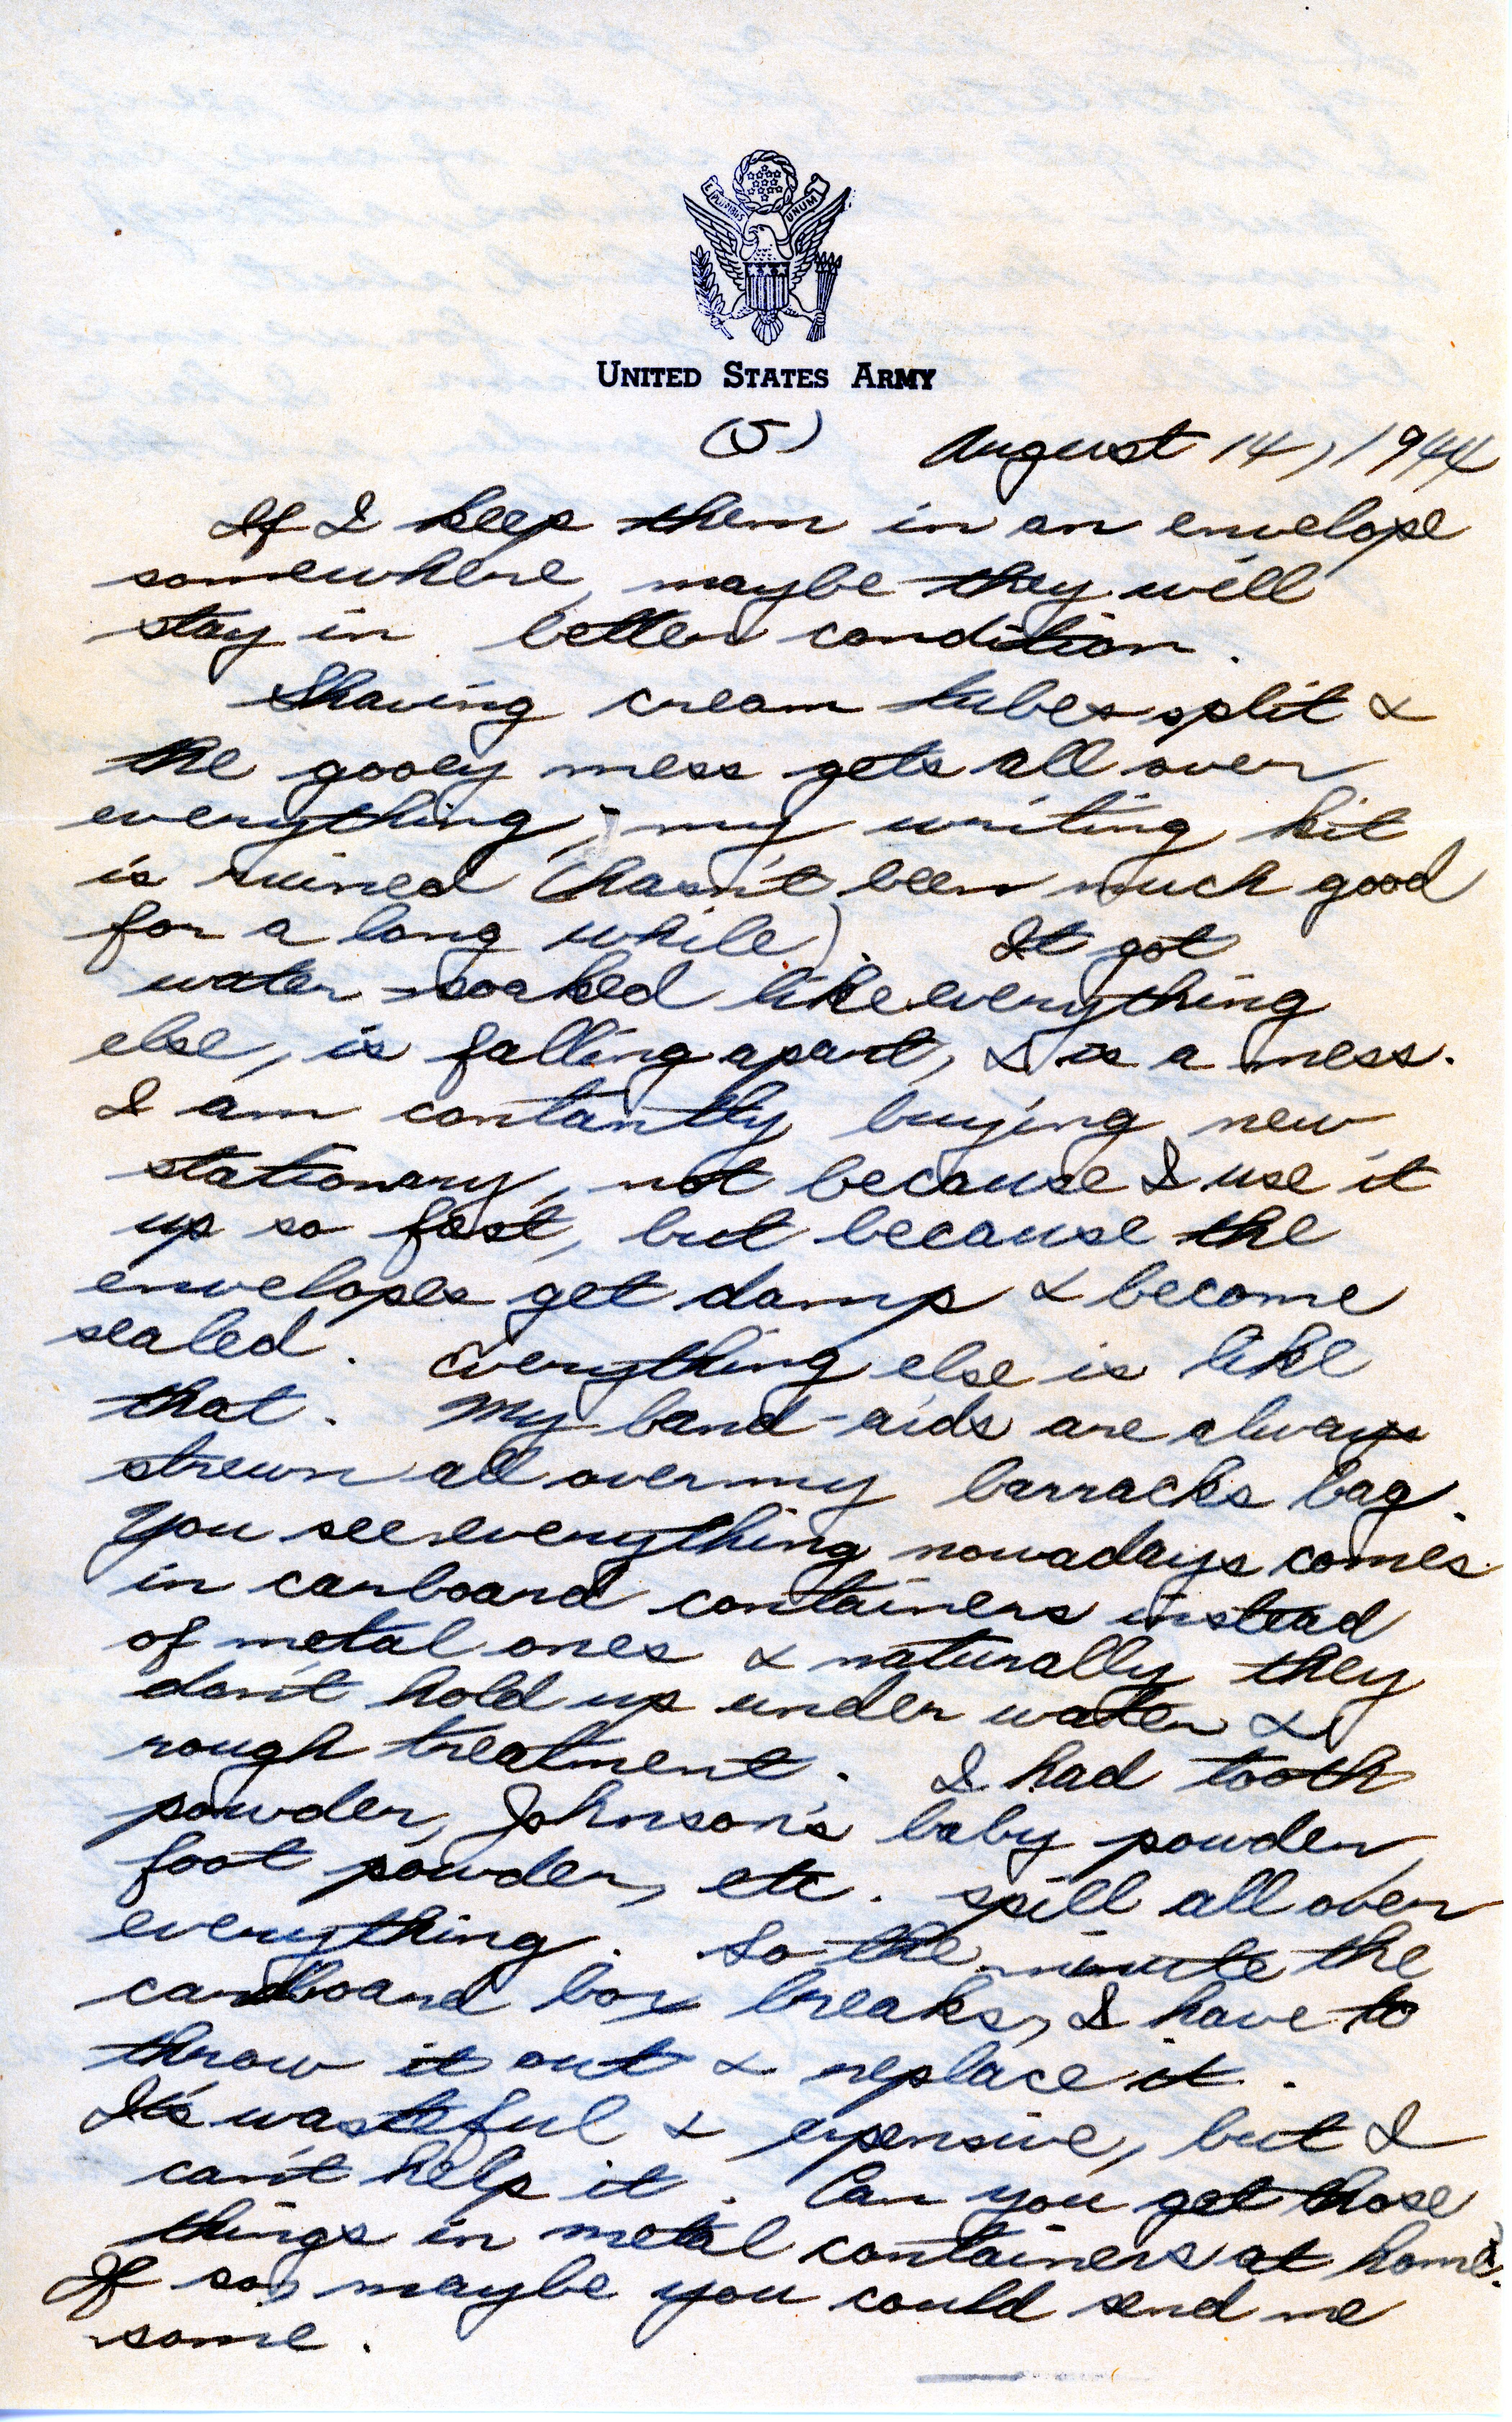 E PLURIBUS UNUM
UNITED STATES ARMY
(5) August 14, 1944
If I keep them in an envelope
somewhere, maybe they will
stay in better condition.
Shaving cream tubes split &
the gooey mess gets all over
everything; my writing kit
is ruined (hasn't been much good
for a long while). It got
water-soaked like everything
else, is falling apart, & is a mess.
I am contantly buying new
stationary, not because I use it
up so fast, but because the
envelopes get damp & become
sealed. Everything else is like
that. My band-aids are always
strewn all over my barracks bag.
You see everything nowadays comes
in carboard containers instead
of metal ones & naturally they
don't hold up under water &
rough treatment. I had tooth
powder, Johnson's baby powder,
foot powder, etc. spill all over
everything. So the minute the
cardboard box breaks, I have to
throw it out & replace it.
It's wasteful & expensive, but I
can't help it. Can you get those
things in metal containers at home?
If so, maybe you could send me
some.